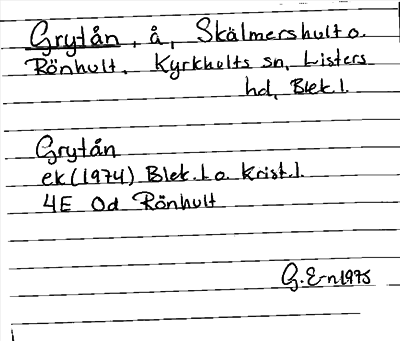 Grytån, å, Skälmershult o.
Rönhult, Kyrkhults sn, Listers
hd, Blek. l.
Grytån
ek (1974) Blek. l. o. Krist. l.
4E Od Rönhult
G. E-n 1975